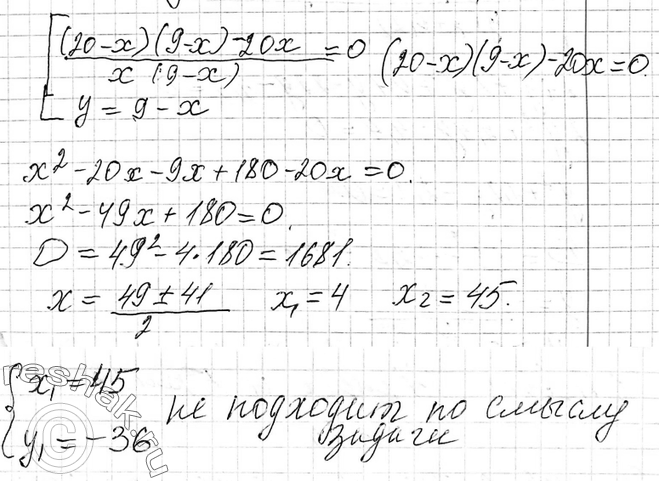 ((20-x)(9-x)-20x)/(x(9-x)) = 0 (20-x)(9-x)-20x=0.
y = 9 - x
x² - 20x - 9x + 180 - 20x = 0.
x² - 49x + 180 = 0.
D = 49² - 4·180 = 1681.
x = (49 ± 41)/2 x₁ = 4 x₂ = 45.
x₁ = 45
y₁ = -36
не подходит по смыслу
задачи
reshak.ru